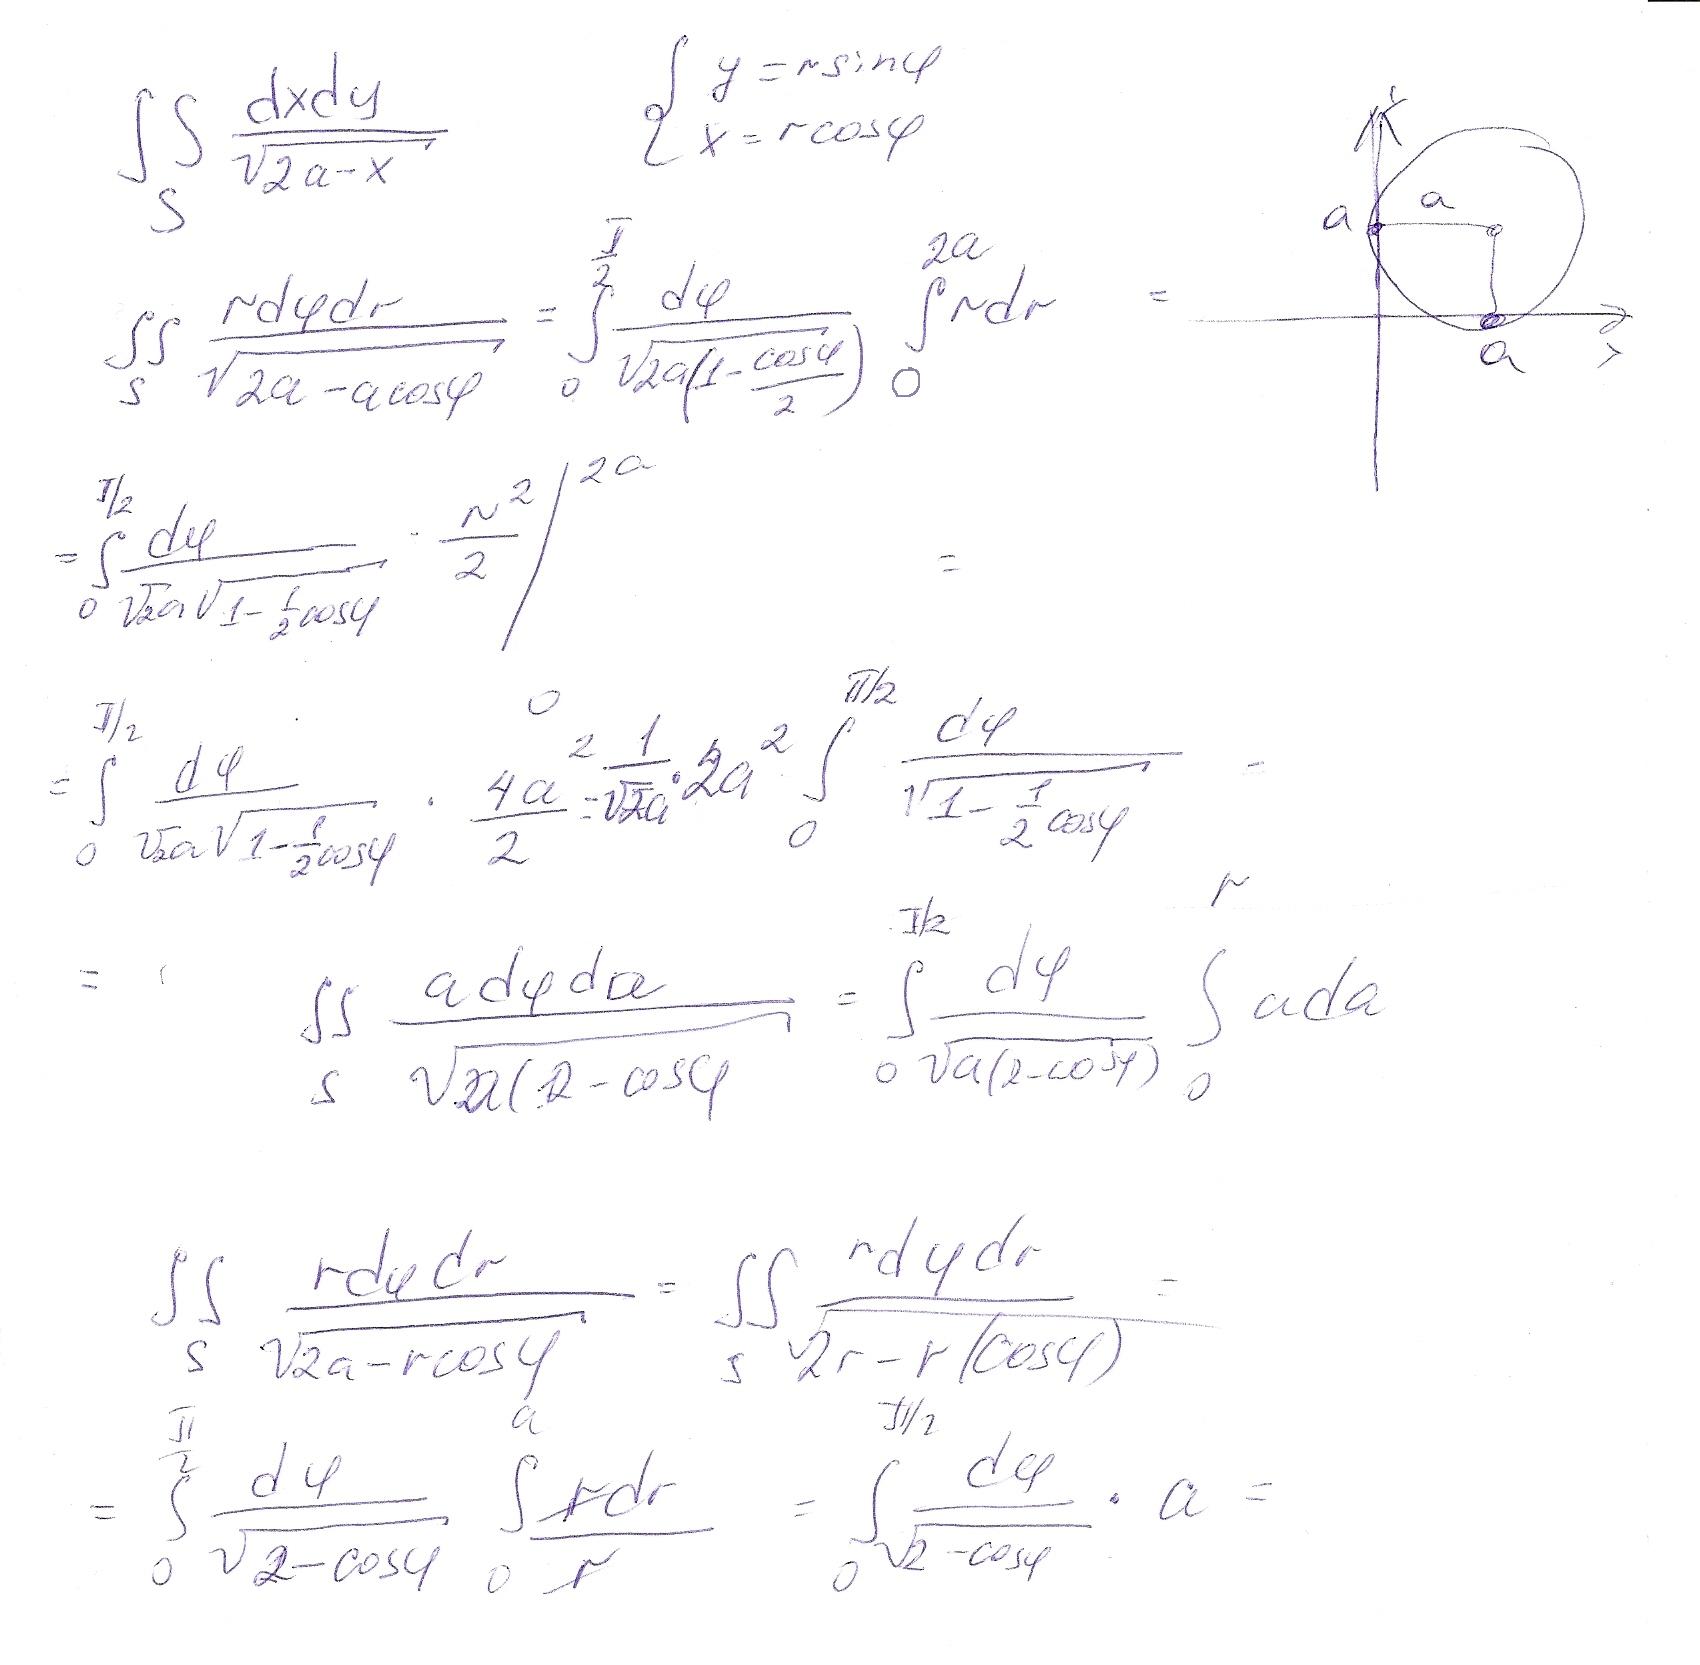 ∫∫_S dxdy/√(2a-x) { y = r sinφ
x = r cosφ
∫∫_S rdφdr/√(2a-acosφ) = ∫_0^{π/2} dφ/√(2a(1-cosφ/2)) ∫_0^{2a} rdr =
a a
a
= ∫_0^{π/2} dφ/(√2a √(1-1/2 cosφ)) · r²/2 |_0^{2a} =
= ∫_0^{π/2} dφ/(√2a √(1-1/2 cosφ)) · 4a²/2 = 1/√2a · 2a² ∫_0^{π/2} dφ/√(1-1/2 cosφ) =
= ∫∫_S adφda/√(a(2-cosφ = ∫_0^{π/2} dφ/√(a(2-cosφ)) ∫_0^r ada
∫∫_S rdφdr/√(2a-rcosφ) = ∫∫_S rdφdr/√(2r-r(cosφ)) =
= ∫_0^{π/2} dφ/√(2-cosφ) ∫_0^a rdr/r = ∫_0^{π/2} dφ/√(2-cosφ) · a =